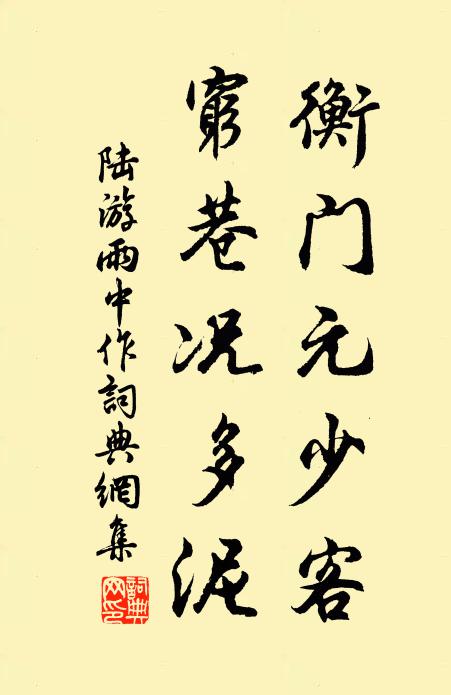 衡门元少客
窮巷况多泥
陆游雨中作詞典網集
詞典网印